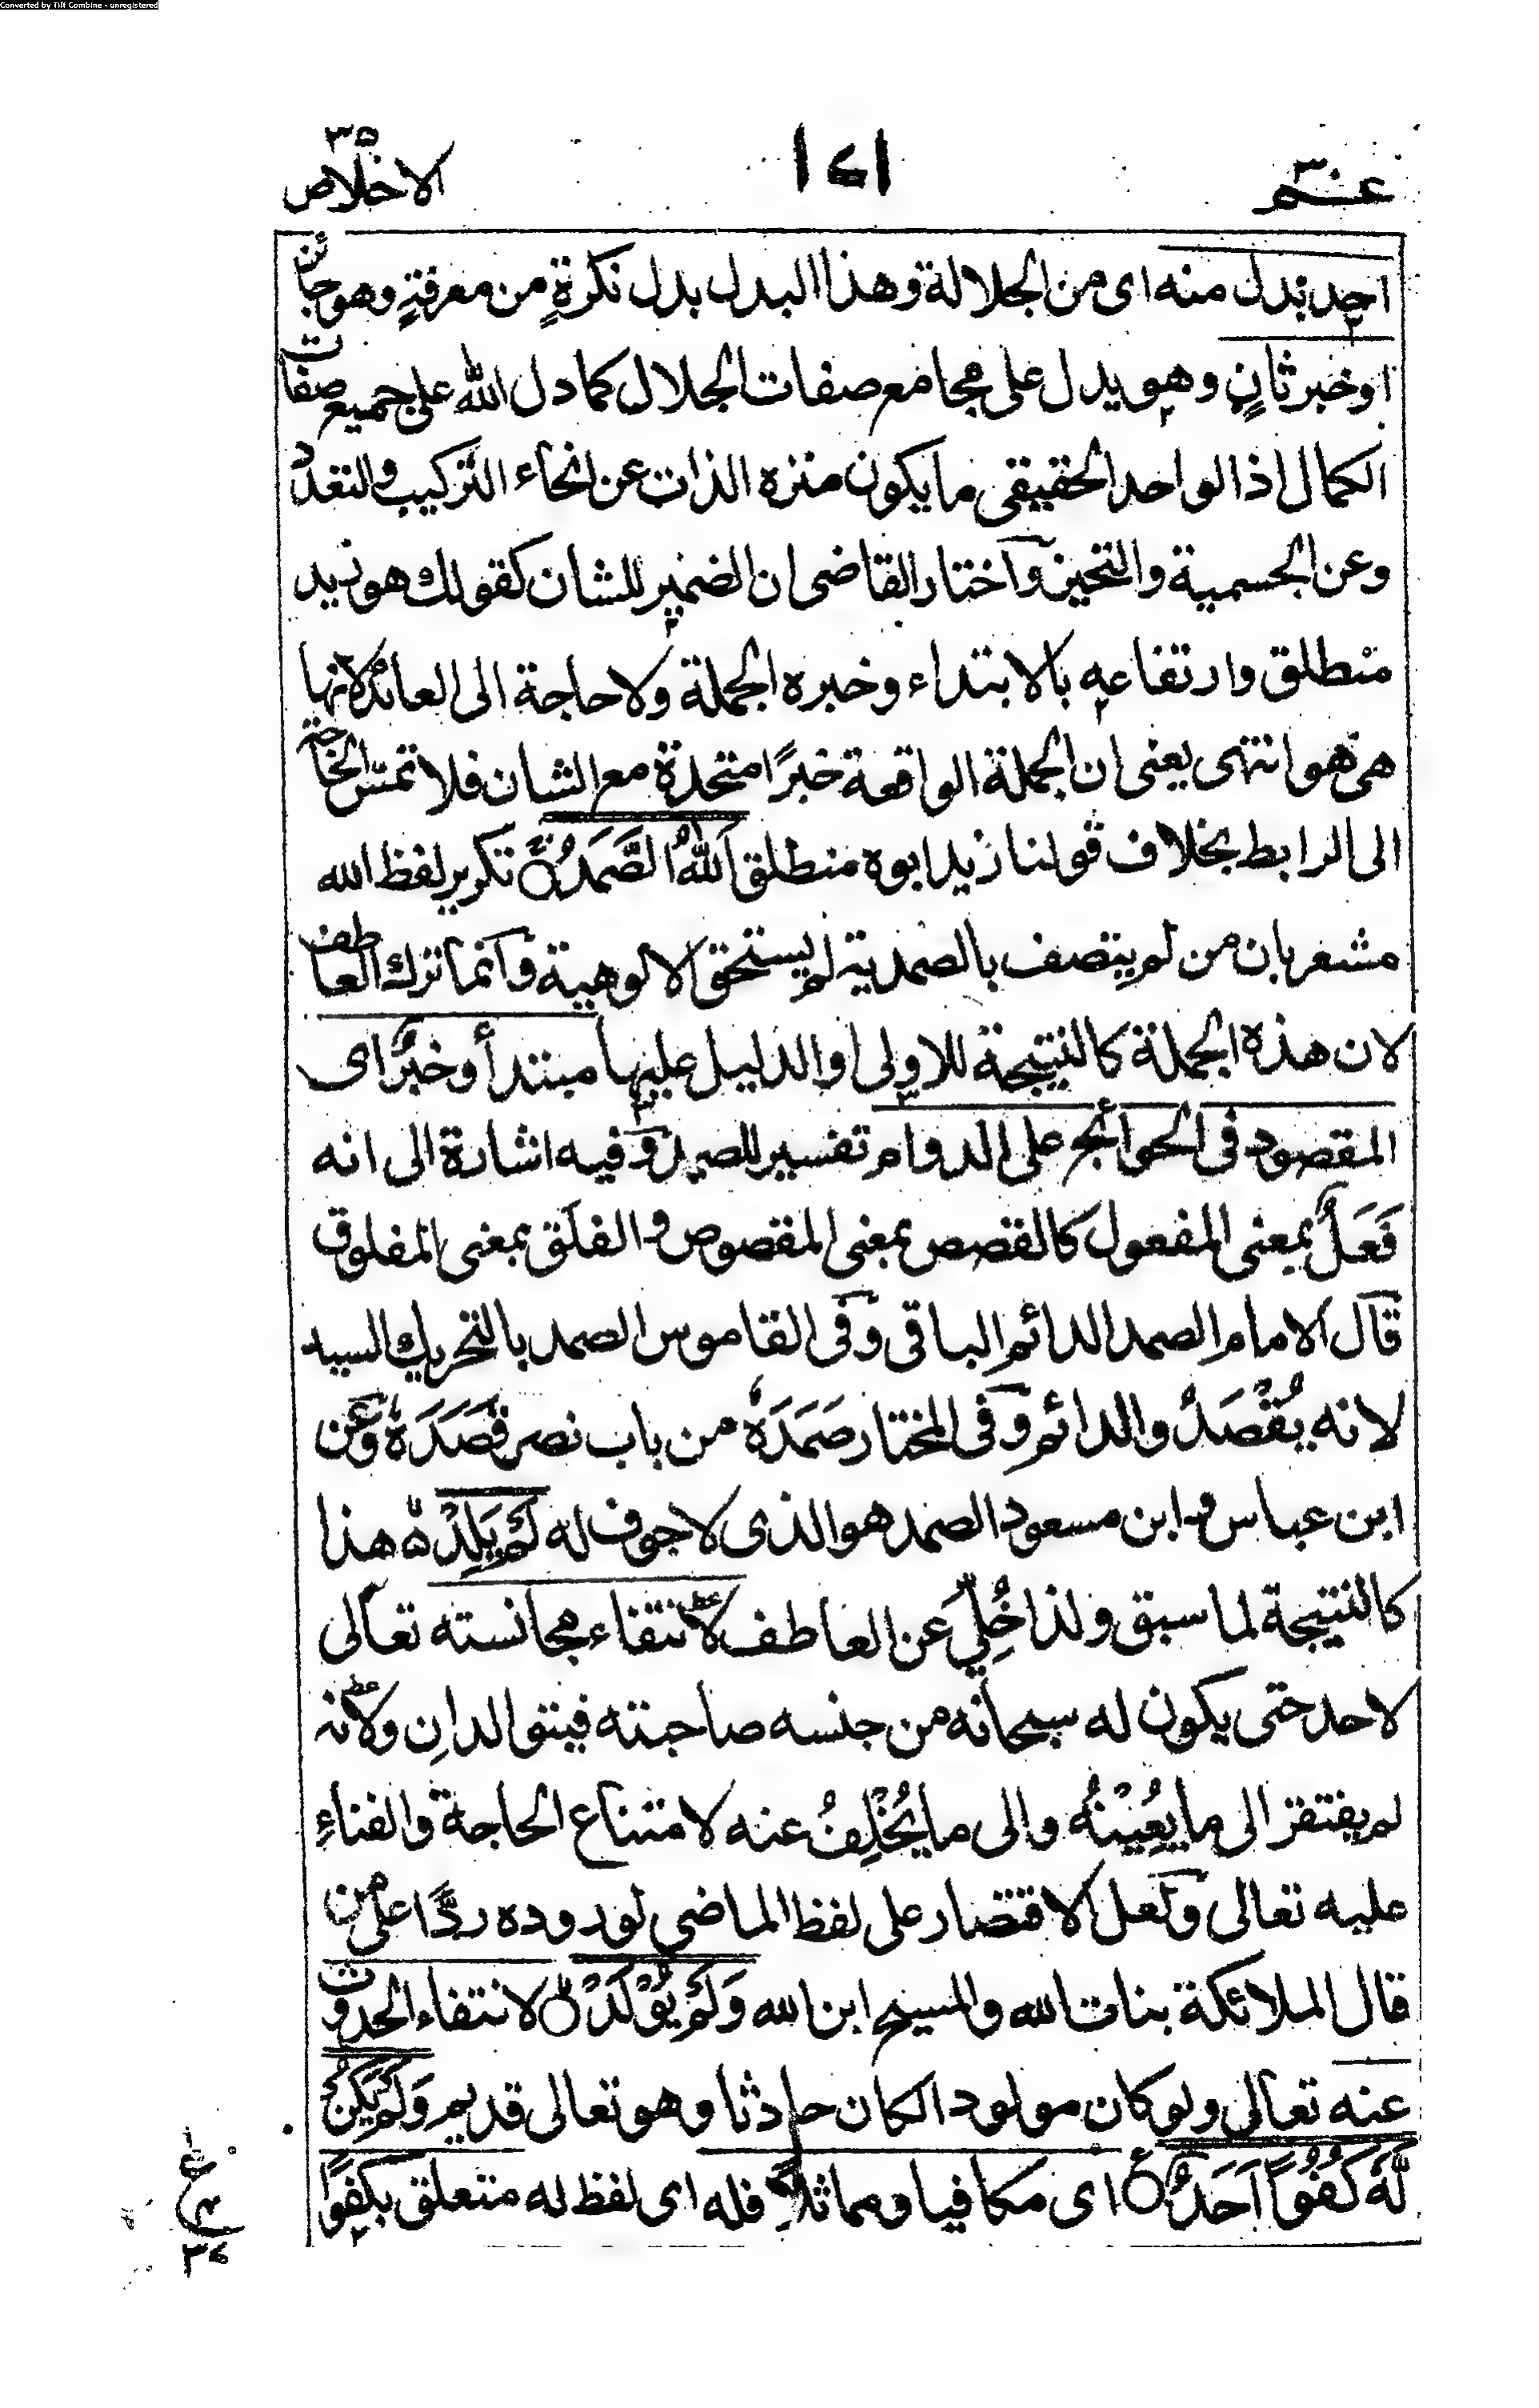 Converted by Tiff Combine - unregistered
عــم ٣٠
١٧١
الاخلاص ٣٥
احد بدل منه اى من الجلالة وهذا البدل بدل نكرةٍ من معرفةٍ وهو جائز
او خبر ثانٍ وهو يدل على مجامع صفات الجلال كما دل الله على جميع صفات
الكمال اذ الواحد الحقيقى ما يكون منزه الذات عن انحاء التركيب والتعدد
وعن الجسمية والتحيز واختار القاضى ان الضمير للشان كقولك هو زيد
منطلق وارتفاعه بالابتداء وخبره الجملة ولا حاجة الى العائد لانها
هى هو انتهى يعنى ان الجملة الواقعة خبرًا متحدة مع الشان فلا تمسّ الحاجة
الى الرابط بخلاف قولنا زيد ابوه منطلق اَللّٰهُ الصَّمَدُ تكرير لفظ الله
مشعر بان من لم يتصف بالصمدية لم يستحق الالوهية وانما ترك العاطف
لان هذه الجملة كالنتيجة للاولى او الدليل عليها مبتدأ وخبر اى
المقصود فى الحوائج على الدوام تفسير للصمد وفيه اشارة الى انه
فَعَلٌ بمعنى المفعول كالقصص بمعنى المقصوص والفلق بمعنى المفلوق
قال الامام الصمد الدائم الباقى وفى القاموس الصمد بالتحريك السيد
لانه يُقْصَدُ والدائم وفى المختار صَمَدَهٗ من باب نصر قَصَدَهٗ وعن
ابن عباس وابن مسعود الصمد هو الذى لا جوف له لَمْ يَلِدْ هذا
كالنتيجة لما سبق ولذا خُلِّىَ عن العاطف لانتفاء مجانسته تعالى
لاحد حتى يكون له سبحانه من جنسه صاحبته فيتوالدانِ ولانه
لم يفتقر الى ما يُعِيْنُهٗ والى ما يُخْلِفُ عنه لامتناع الحاجة والفناءِ
عليه تعالى ولعل الاقتصار على لفظ الماضى لوروده ردًّا على من
قال الملائكة بنات الله والمسيح ابن الله وَلَمْ يُوْلَدْ لانتفاء الحدوث
عنه تعالى ولو كان مولودا لكان حادثا وهو تعالى قديم وَلَمْ يَكُنْ
لَّهٗ كُفُوًا اَحَدٌ اى مكافيا ومماثلا فله اى لفظ له متعلق بكفوًا